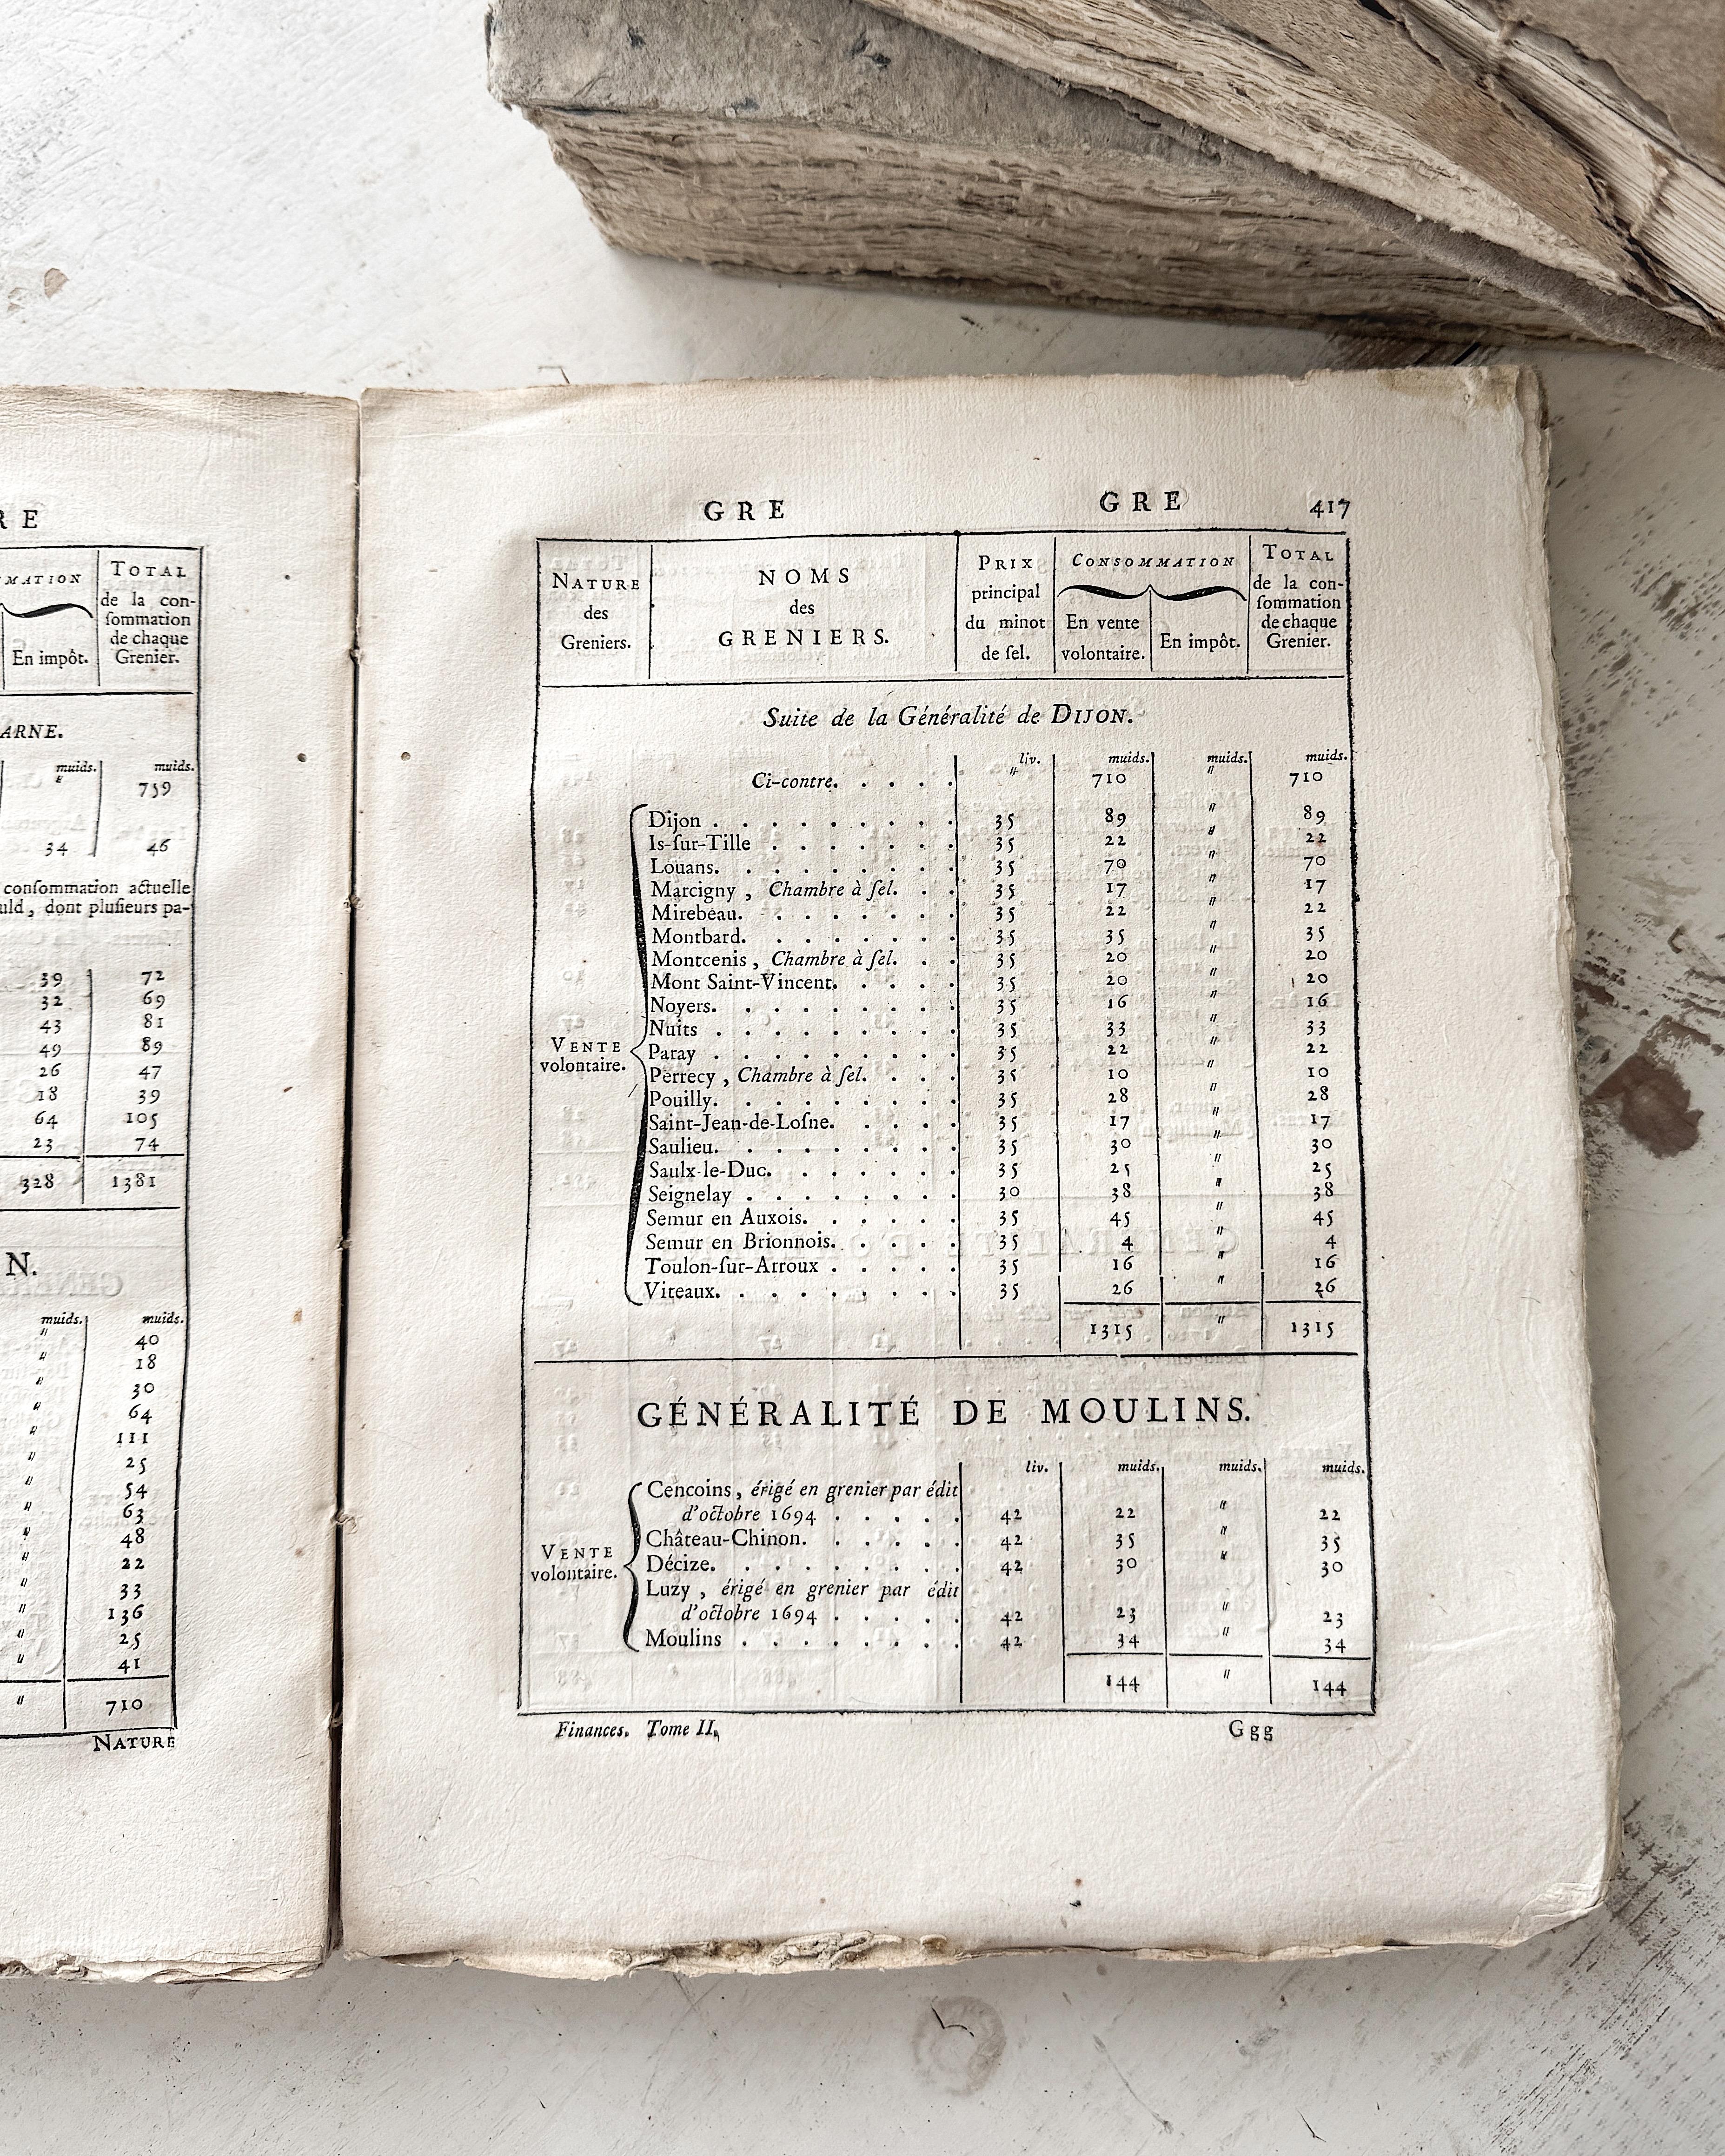 RE
MMATION TOTAL
de la con-
ſommation
de chaque
En impôt. Grenier.
ARNE.
muids. muids.
" 759
34 46
conſommation actuelle
uld, dont pluſieurs pa-
39 72
32 69
43 81
49 89
26 47
18 39
64 105
23 74
328 1381
N.
muids. muids.
" 40
" 18
" 30
" 64
" 111
" 25
" 54
" 63
" 48
" 22
" 33
" 136
" 25
" 41
" 710
NATURE
GRE GRE 417
NATURE
des
Greniers.
NOMS
des
GRENIERS.
PRIX
principal
du minot
de ſel.
CONSOMMATION
En vente
volontaire.
En impôt.
TOTAL
de la con-
ſommation
de chaque
Grenier.
Suite de la Généralité de DIJON.
liv. muids. muids. muids.
Ci-contre. . . . . " 710 " 710
VENTE
volontaire.
Dijon . . . . . . . . . 35 89 " 89
Is-ſur-Tille . . . . . . . 35 22 " 22
Louans. . . . . . . . . 35 70 " 70
Marcigny , Chambre à ſel. . . 35 17 " 17
Mirebeau. . . . . . . . 35 22 " 22
Montbard. . . . . . . . 35 35 " 35
Montcenis , Chambre à ſel. . . 35 20 " 20
Mont Saint-Vincent. . . . . 35 20 " 20
Noyers. . . . . . . . . 35 16 " 16
Nuits . . . . . . . . . 35 33 " 33
Paray . . . . . . . . . 35 22 " 22
Perrecy , Chambre à ſel. . . . 35 10 " 10
Pouilly. . . . . . . . . 35 28 " 28
Saint-Jean-de-Loſne. . . . . 35 17 " 17
Saulieu. . . . . . . . . 35 30 " 30
Saulx-le-Duc. . . . . . . 35 25 " 25
Seignelay . . . . . . . . 30 38 " 38
Semur en Auxois. . . . . . 35 45 " 45
Semur en Brionnois. . . . . 35 4 " 4
Toulon-ſur-Arroux . . . . . 35 16 " 16
Viteaux. . . . . . . . . 35 26 " 26
1315 " 1315
GÉNÉRALITÉ DE MOULINS.
liv. muids. muids. muids.
VENTE
volontaire.
Cencoins , érigé en grenier par édit
d'octobre 1694 . . . . . 42 22 " 22
Château-Chinon. . . . . . 42 35 " 35
Décize. . . . . . . . . 42 30 " 30
Luzy , érigé en grenier par édit
d'octobre 1694 . . . . . 42 23 " 23
Moulins . . . . . . . . 42 34 " 34
144 " 144
Finances. Tome II. Ggg